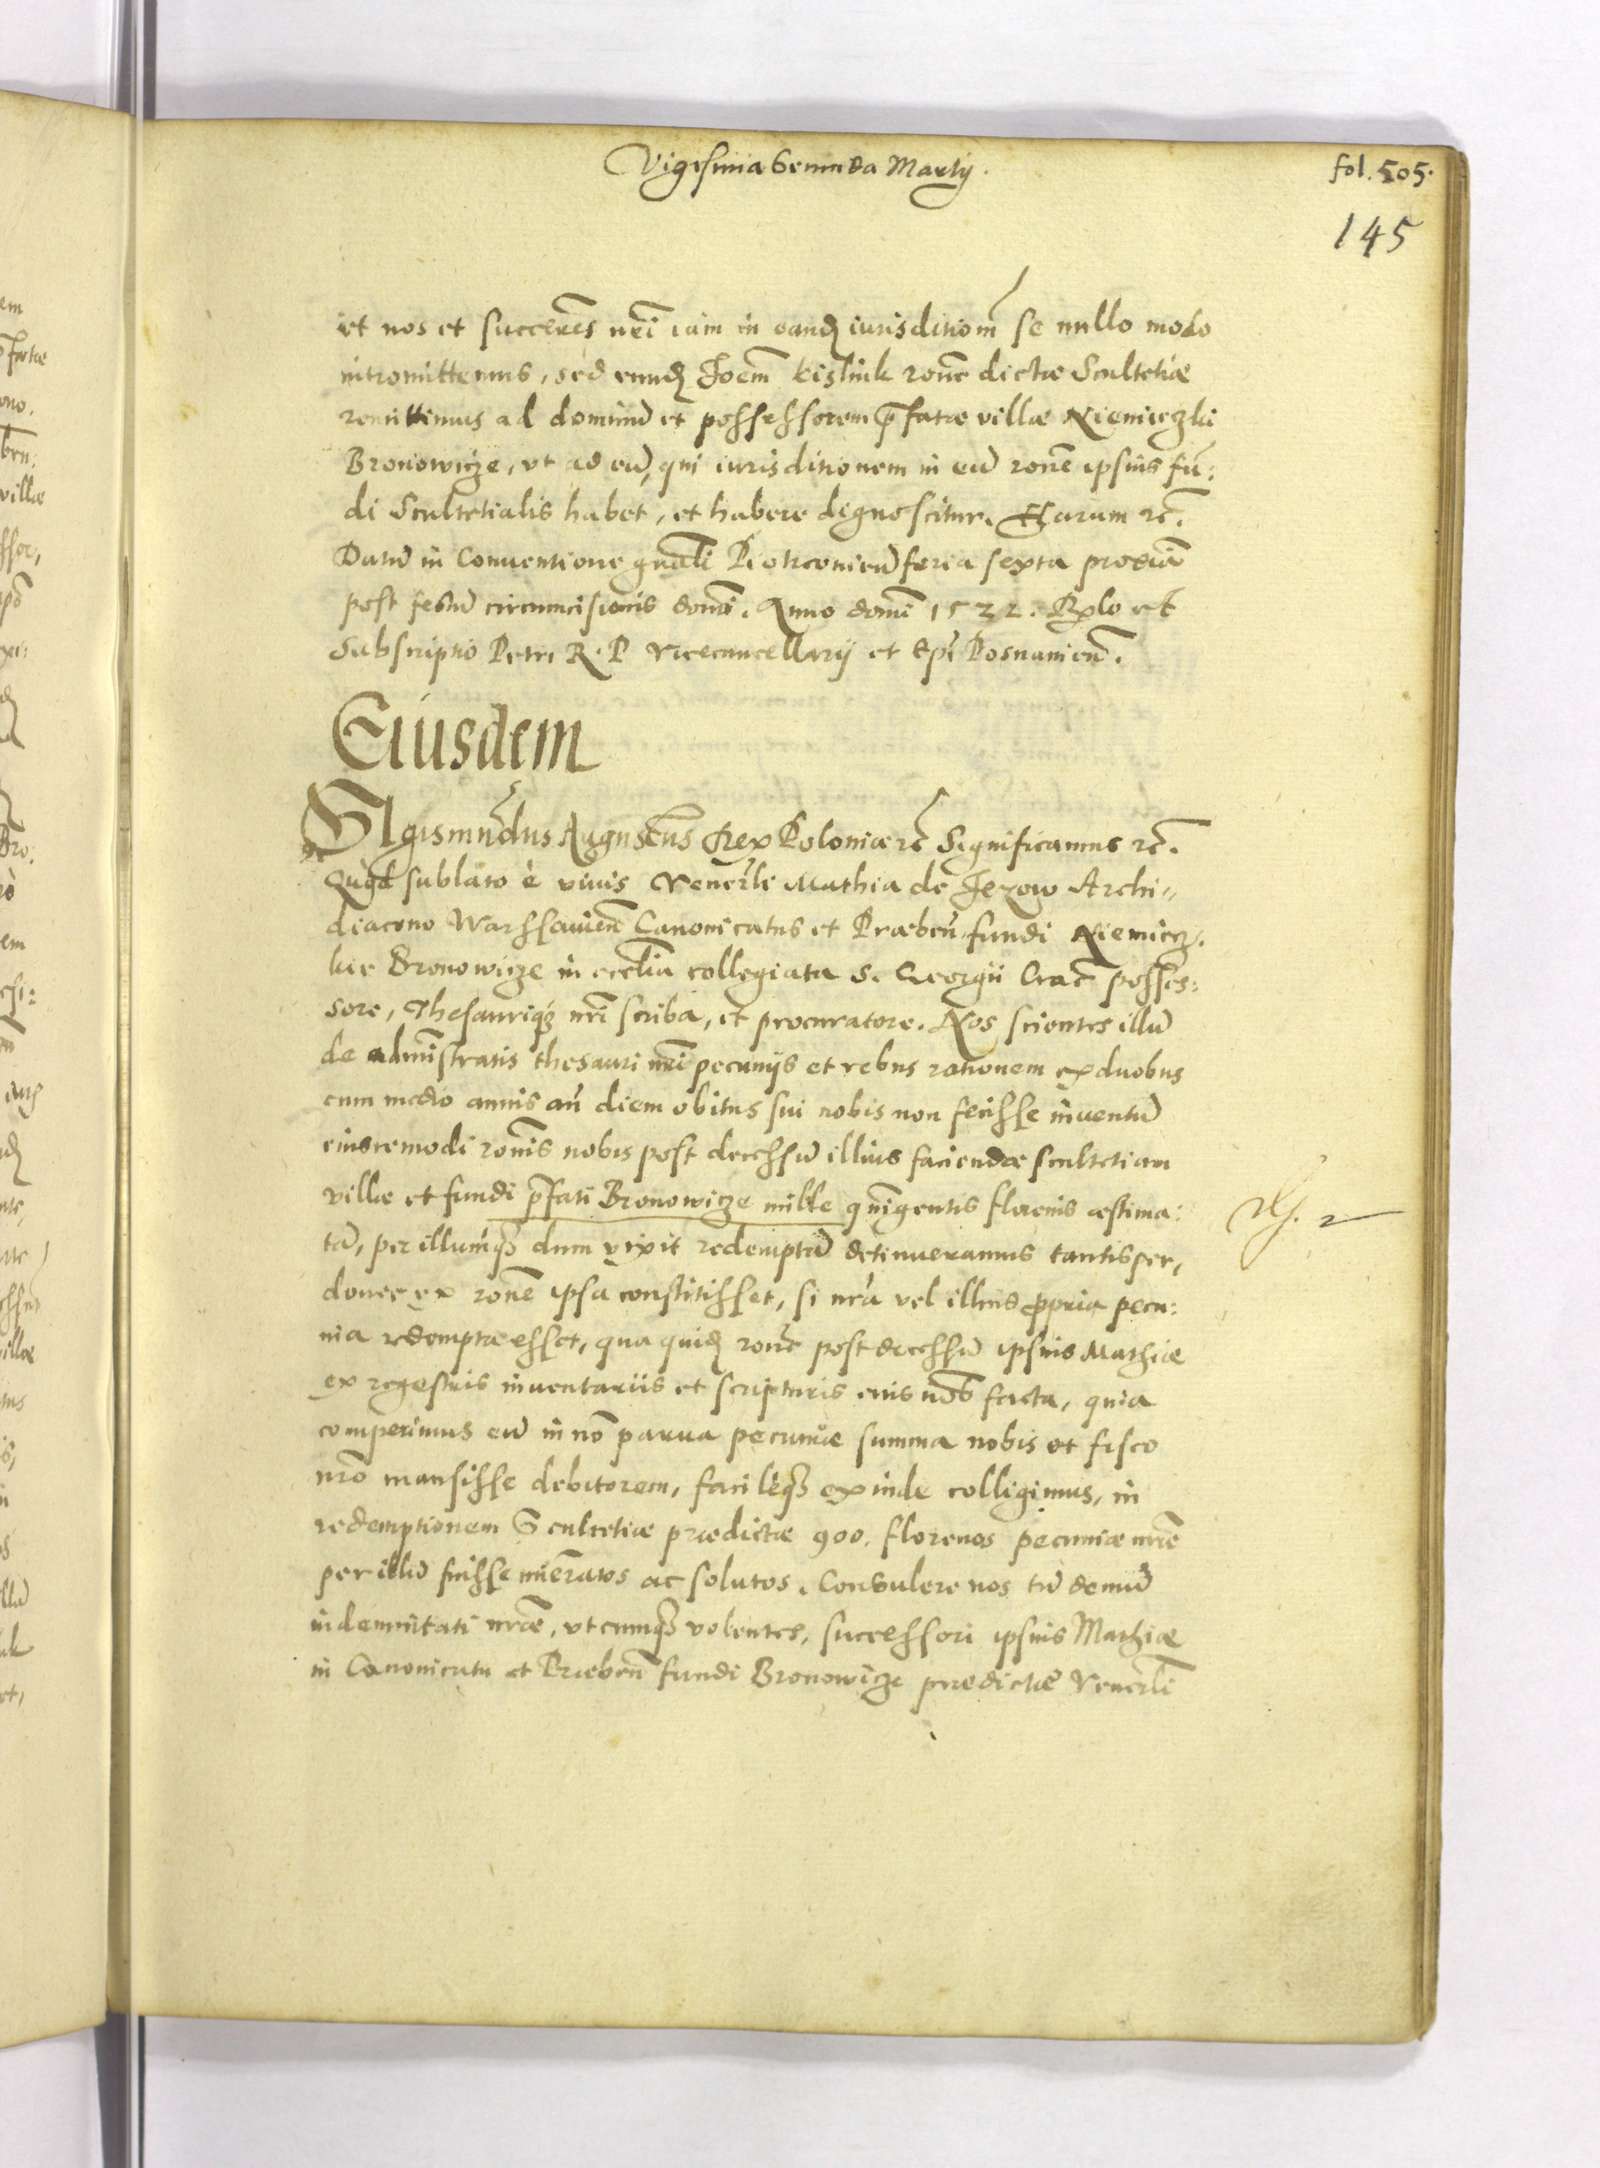 Vigesima Secunda Martij.
fol. 505.
145
et nos et succes̄res nr̄i iam in eandꝫ iurisditiom̄ se nullo modo
intromittemus, sed eundꝫ Joēm kislink rōne dictæ Scultetiæ
remittimus ad dominū et possessorem p̄fatæ villæ Niemieczki
Bronowicze, vt ad eū, qui iurisditionem in eū rōne ipsius fū:
di Scultetialis habet, et habere dignoscitur. Harum rc̄.
Datū in Conuentione gn̄ali Piotrcouien̄ feria sexta proxīa
post festū circumcisionis domī. Anno domī 1522. Rl̄o et
Subscriptio Petri R. P. Vicecancellarij et Ep̄i Posnanien̄.
Eiusdem
SIgismūdus Augustus Rex Poloniæ rc̄ Significamus rc̄.
Quod sublato è viuis Venerl̄i Mathia de Jezow Archi„
diacono Warssauien̄ Canonicatus et Præben̄ fundi Niemiecz.
kie Bronowicze in ecclīa collegiata S. Georgii Crac̄ posses:
sore, Thesauriqꝫ nr̄i scriba, et procuratore. Nos scientes illū
de admīstratis thesauri nr̄i pecunijs et rebus rationem ex duobus
cum medio annis an̄ diem obitus sui nobis non fecisse inuentū
eiuscemodi rōnis nobis post decessū illius faciendæ scultetiam
villæ et fundi p̄fati Bronowicze mille qnīgentis florenis æstima:
tā, per illumqꝫ dum vixit redemptā detinueramus tantisper,
donec ex rōne ipsa constitisset, si nr̄a vel illius ꝓpria pecu:
nia redempta esset, qua quidꝫ rōne post decessū ipsius Mathiæ
ex regestris inuentariis et scripturis eius nob̄ facta, quia
comperimus eū in nō parua pecuniæ summa nobis et fisco
nr̄o mansisse debitorem, facileqꝫ exinde colligimus, in
redemptionem Scultetiæ prædictæ 900. florenos pecuniæ nr̄æ
per illū fuisse nūeratos ac solutos. Consulere nos tū demū
indemnitati nr̄æ, vtcumqꝫ volentes, successori ipsius Mathiæ
in Canonicatu et Præben̄ fundi Bronowicze prædictæ Venerl̄i